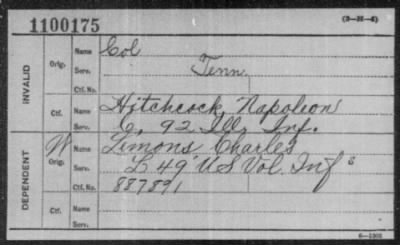 1100175
(3-H-4)
INVALID
Orig.
Name Col
Serv. Tenn.
Ctf. No.
Ctf.
Name Hitchcock, Napoleon
Serv. C, 92 Ill. Inf.
DEPENDENT
W
Orig.
Name Lemons Charles
Serv. L 49 U S Vol. Inf
Ctf. No. 887891
Ctf.
Name
Serv.